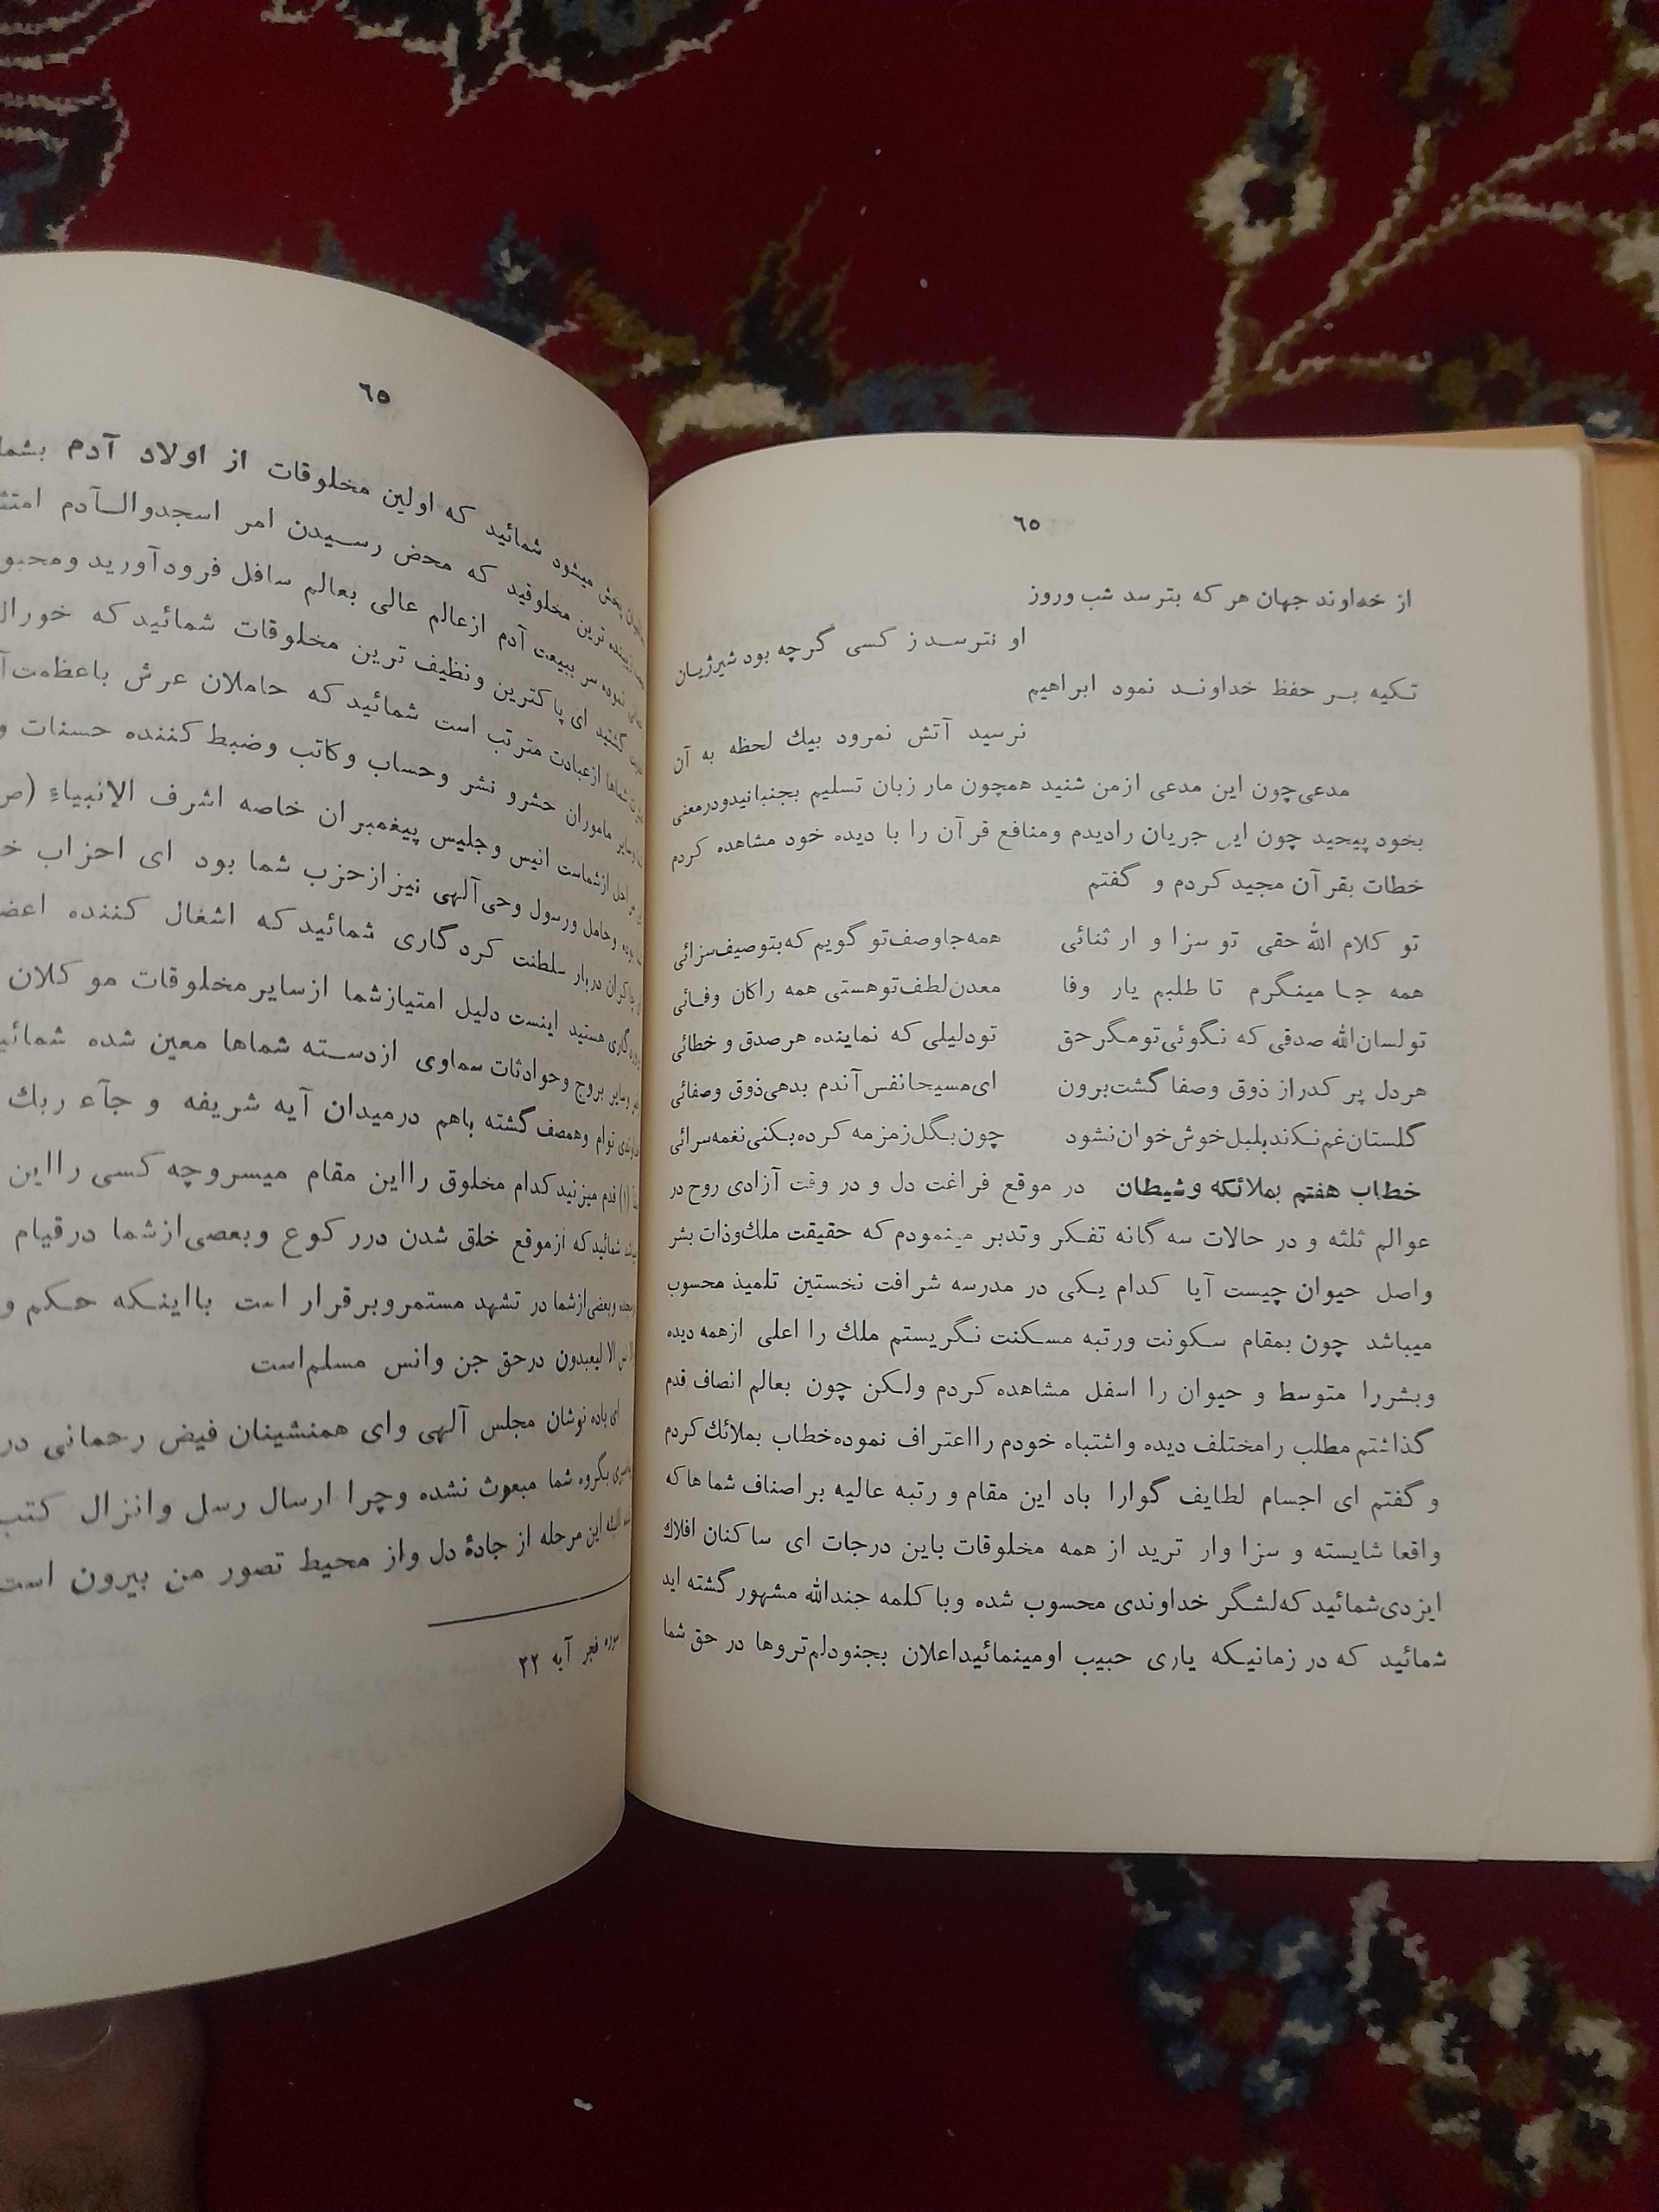 ٦٥
از خداوند جهان هر که بترسد شب وروز
او نترسد ز کسی گرچه بود شیرژیان
تکیه بر حفظ خداوند نمود ابراهیم
نرسید آتش نمرود بیك لحظه به آن
مدعی چون این مدعی ازمن شنید همچون مار زبان تسلیم بجنبانیدودرمعنی
بخود پیحید چون این جریان رادیدم ومنافع قرآن را با دیده خود مشاهده کردم
خطات بقرآن مجید کردم و گفتم
تو کلام الله حقی تو سزا و ار ثنائی همه جاوصف تو گویم که بتوصیف سزائی
همه جا مینگرم تا طلبم یار وفا معدن لطف توهستی همه راکان وفائی
تولسان الله صدقی که نگوئی تومگرحق تودلیلی که نماینده هرصدق و خطائی
هردل پر کدراز ذوق وصفا گشت برون ای مسیحانفس آندم بدهی ذوق وصفائی
گلستان غم نکند بلبل خوش خوان نشود چون بگل زمزمه کرده بکنی نغمه سرائی
خطاب هفتم بملائکه وشیطان در موقع فراغت دل و در وقت آزادی روح در
عوالم ثلثه و در حالات سه گانه تفکر وتدبر مینمودم که حقیقت ملك وذات بشر
واصل حیوان چیست آیا کدام یکی در مدرسه شرافت نخستین تلمیذ محسوب
میباشد چون بمقام سکونت ورتبه مسکنت نگریستم ملك را اعلی ازهمه دیده
وبشررا متوسط و حیوان را اسفل مشاهده کردم ولکن چون بعالم انصاف قدم
گذاشتم مطلب رامختلف دیده واشتباه خودم رااعتراف نموده خطاب بملائك کردم
و گفتم ای اجسام لطایف گوارا باد این مقام و رتبه عالیه براصناف شماها که
واقعا شایسته و سزا وار ترید از همه مخلوقات باین درجات ای ساکنان افلاك
ایزدی شمائید که لشگر خداوندی محسوب شده وبا کلمه جندالله مشهور گشته اید
شمائید که در زمانیکه یاری حبیب اومینمائیداعلان بجنودلم تروها در حق شما
٦٥
پخش میشود شمائید که اولین مخلوقات از اولاد آدم بشما
ترین مخلوقید که محض رسیدن امر اسجدوالآدم
نموده سر ببیعت آدم ازعالم عالی بعالم سافل فرودآورید
گشتید ای پاکترین ونظیف ترین مخلوقات شمائید که
شماها ازعبادت مترتب است شمائید که حاملان عرش باعظمت
وسایر ماموران حشرو نشر وحساب وکاتب وضبط کننده حسنات و
ازشماست انیس وجلیس پیغمبران خاصه اشرف الانبیاء (ص
بوده وحامل ورسول وحی آلهی نیزازحزب شما بود ای احزاب
چاکران دربار سلطنت کرد گاری شمائید که اشغال کننده
گاری هستید اینست دلیل امتیازشما ازسایرمخلوقات مو کلان
وسایر بروج وحوادثات سماوی ازدسته شماها معین شده
توام وهمصف گشته باهم درمیدان آیه شریفه و جآء ربك
(۱) قدم میزنید کدام مخلوق رااین مقام میسروچه کسی رااین
شمائید که ازموقع خلق شدن درر کوع وبعضی ازشما درقیام
وبعضی ازشما در تشهد مستمروبرقرار است بااینکه حکم و
الا لیعبدون درحق جن وانس مسلم است
ای باده نوشان مجلس آلهی وای همنشینان فیض رحمانی در
بگروه شما مبعوث نشده وچرا ارسال رسل وانزال کتب
این مرحله از جادهٔ دل واز محیط تصور من بیرون است
سوره فجر آیه ۲۲